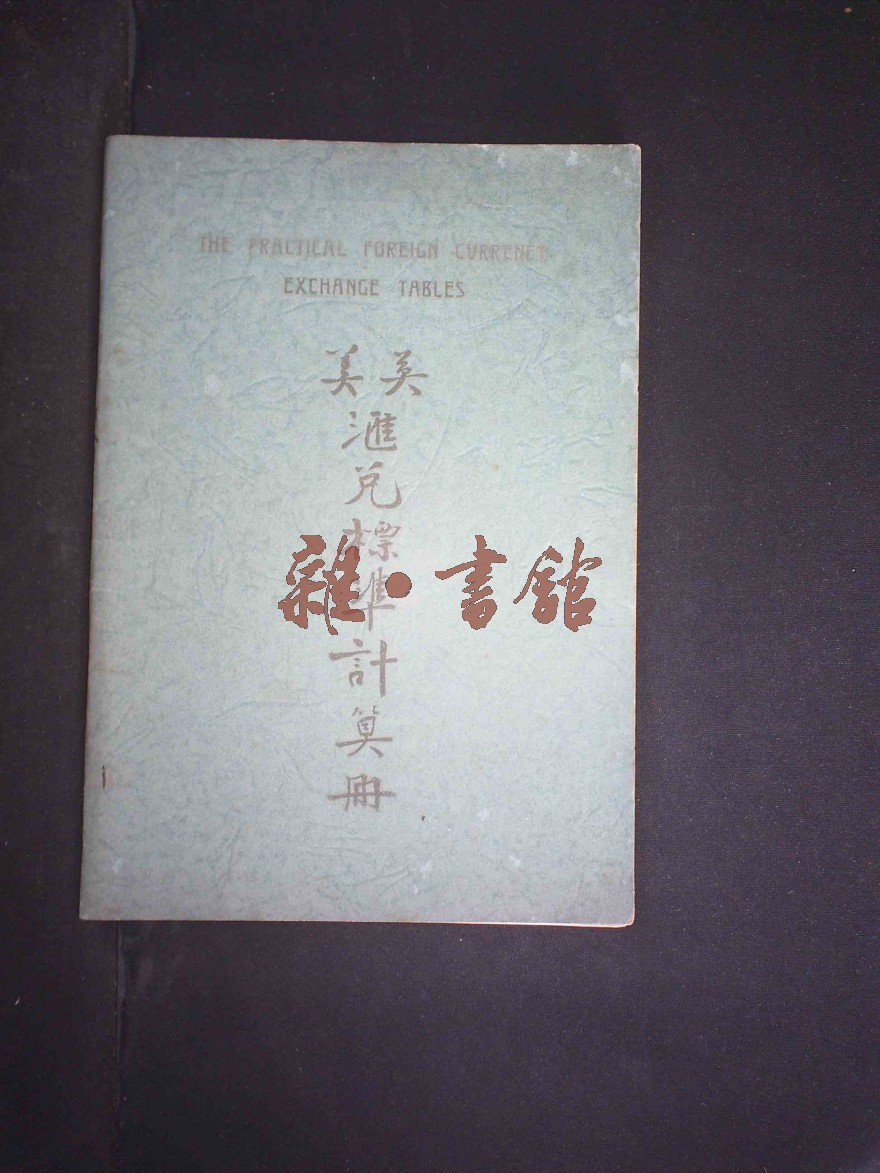 THE PRACTICAL FOREIGN CURRENCY
EXCHANGE TABLES
英美
滙兑標準計算冊
雜·書館